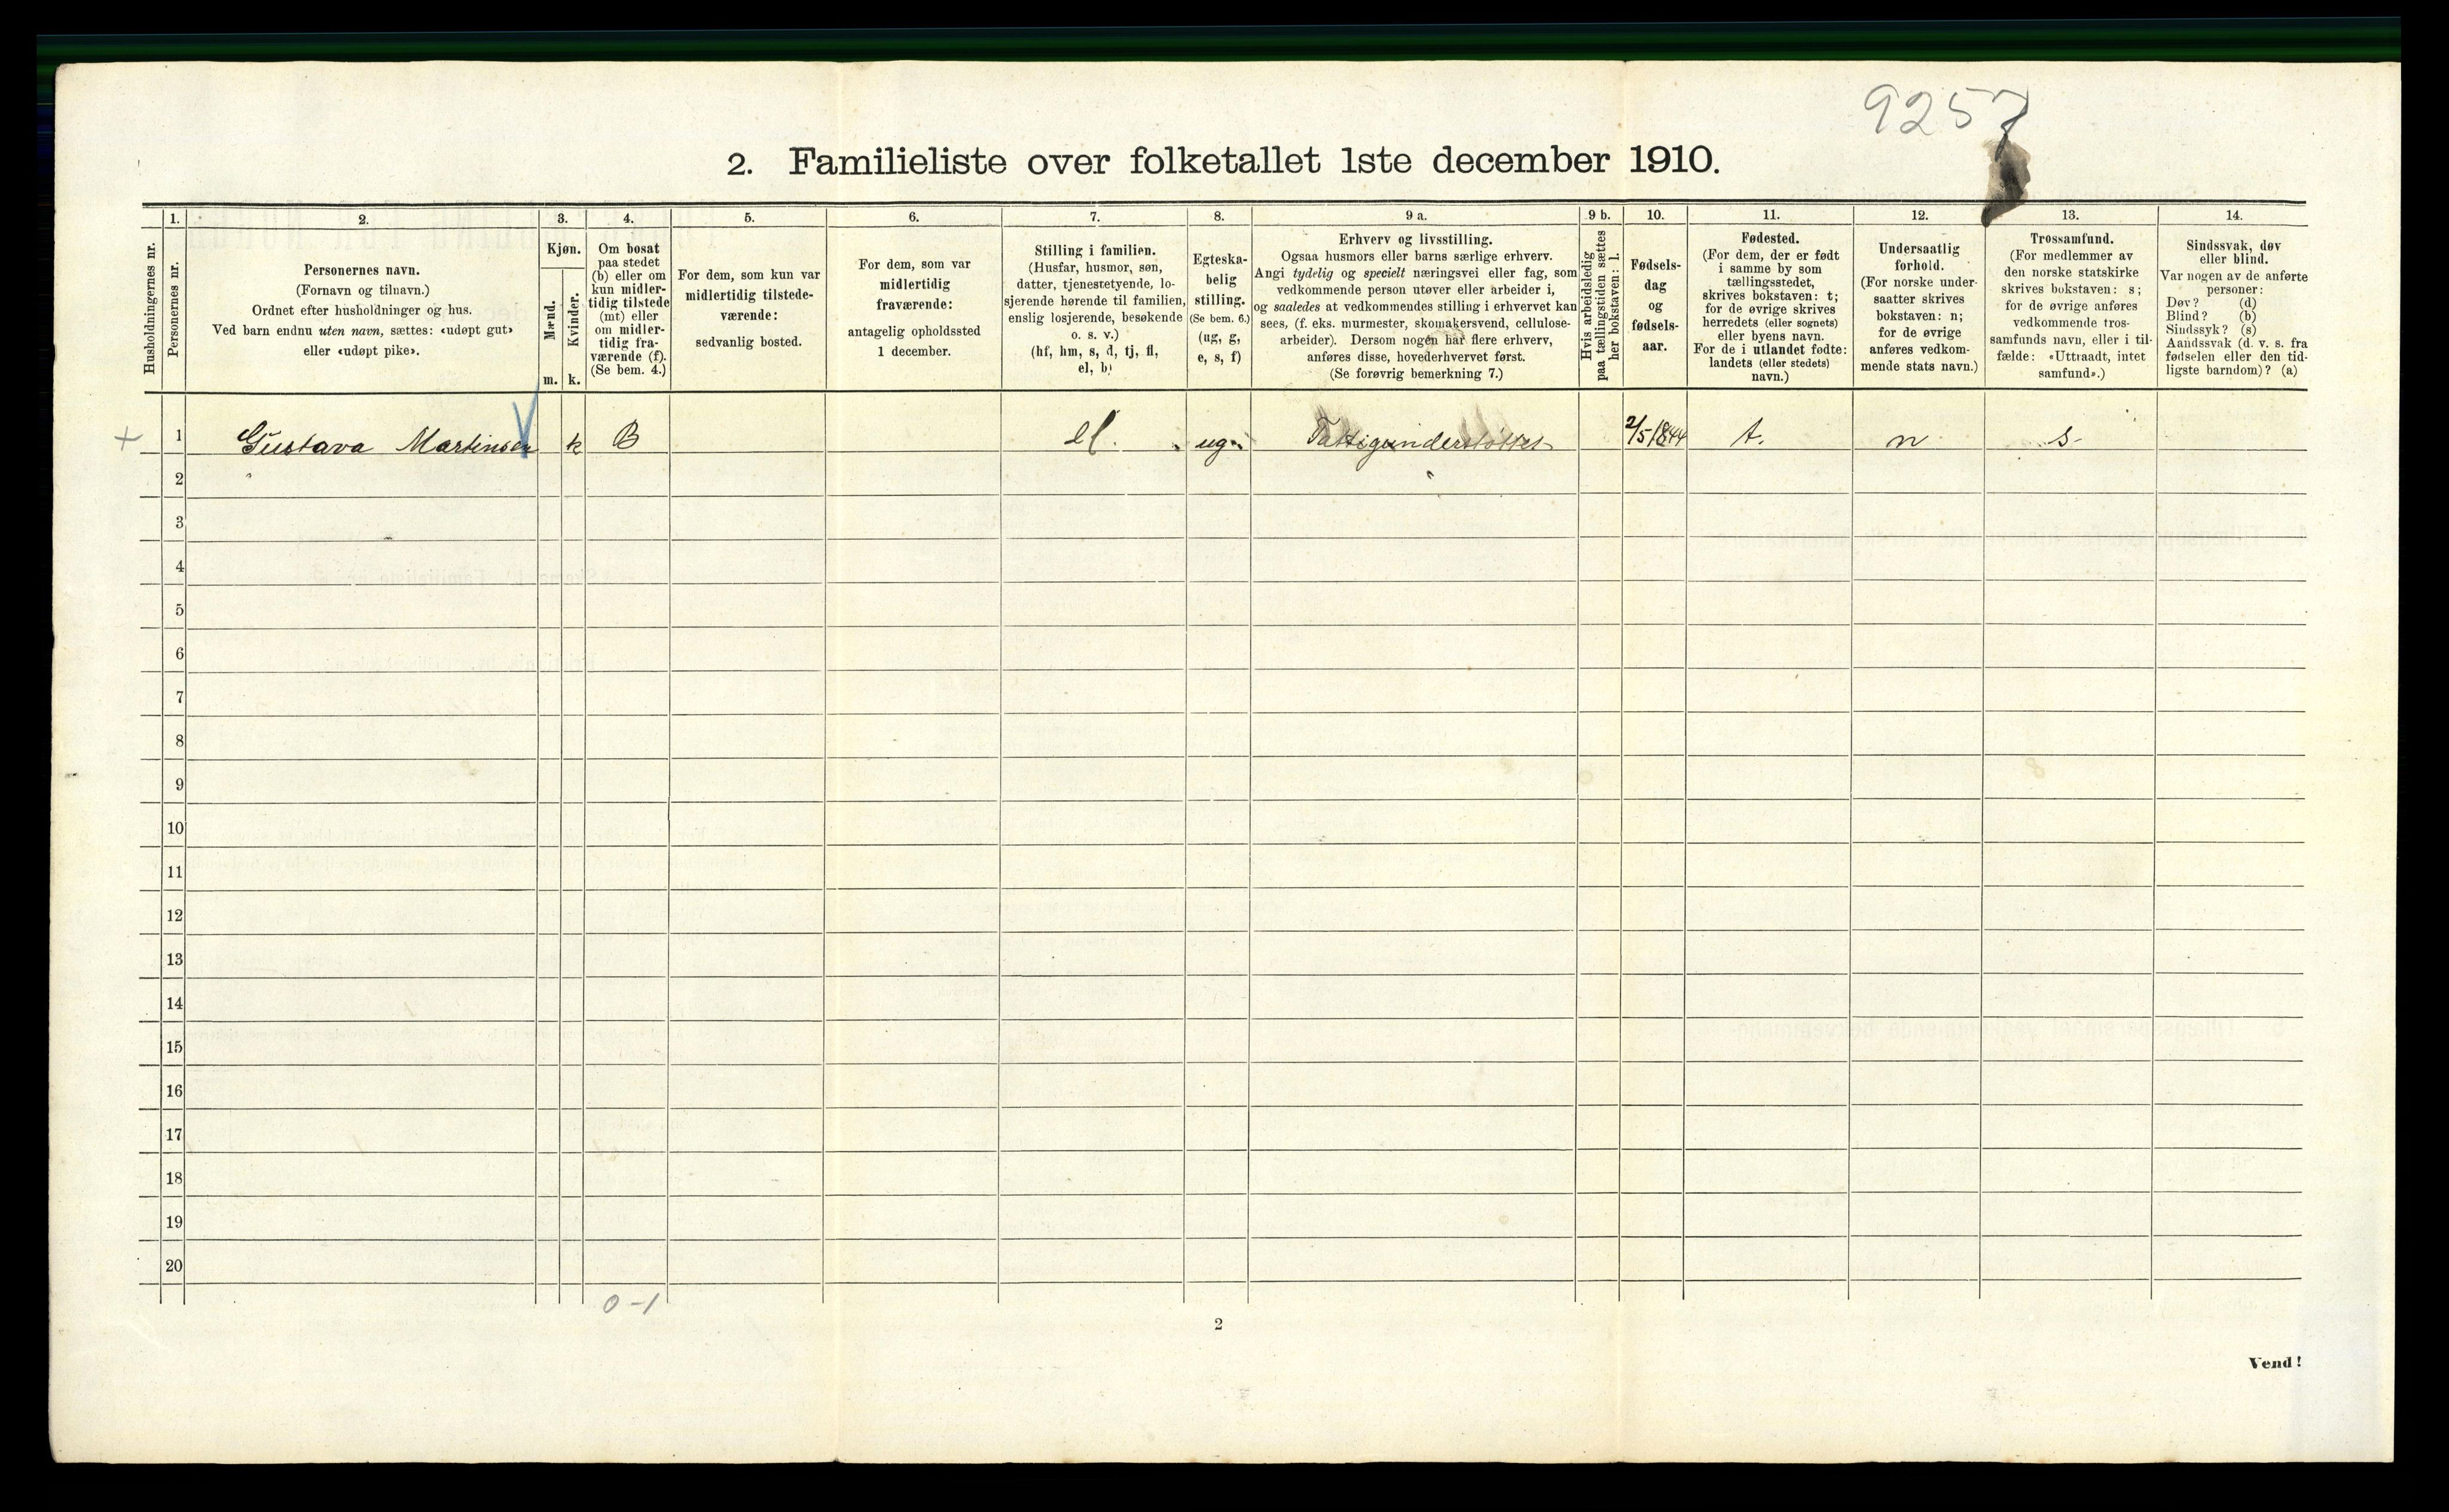 9257
2. Familieliste over folketallet 1ste december 1910.
Husholdningernes nr.
1.
Personernes nr.
2.
Personernes navn.
(Fornavn og tilnavn.)
Ordnet efter husholdninger og hus.
Ved barn endnu uten navn, sættes: «udøpt gut»
eller «udøpt pike».
3.
Kjøn.
Mænd.
m.
Kvinder.
k.
4.
Om bosat
paa stedet
(b) eller om
kun midler-
tidig tilstede
(mt) eller
om midler-
tidig fra-
værende (f).
(Se bem. 4.)
5.
For dem, som kun var
midlertidig tilstede-
værende:
sedvanlig bosted.
6.
For dem, som var
midlertidig
fraværende:
antagelig opholdssted
1 december.
7.
Stilling i familien.
(Husfar, husmor, søn,
datter, tjenestetyende, lo-
sjerende hørende til familien,
enslig losjerende, besøkende
o. s. v.)
(hf, hm, s, d, tj, fl,
el, b)
8.
Egteska-
belig
stilling.
(Se bem. 6.)
(ug, g,
e, s, f)
9 a.
Erhverv og livsstilling.
Ogsaa husmors eller barns særlige erhverv.
Angi tydelig og specielt næringsvei eller fag, som
vedkommende person utøver eller arbeider i,
og saaledes at vedkommendes stilling i erhvervet kan
sees, (f. eks. murmester, skomakersvend, cellulose-
arbeider). Dersom nogen har flere erhverv,
anføres disse, hovederhvervet først.
(Se forøvrig bemerkning 7.)
9 b.
Hvis arbeidsledig
paa tællingstiden sættes
her bokstaven: l.
10.
Fødsels-
dag
og
fødsels-
aar.
11.
Fødested.
(For dem, der er født
i samme by som
tællingsstedet,
skrives bokstaven: t;
for de øvrige skrives
herredets (eller sognets)
eller byens navn.
For de i utlandet fødte:
landets (eller stedets)
navn.)
12.
Undersaatlig
forhold.
(For norske under-
saatter skrives
bokstaven: n;
for de øvrige
anføres vedkom-
mende stats navn.)
13.
Trossamfund.
(For medlemmer av
den norske statskirke
skrives bokstaven: s;
for de øvrige anføres
vedkommende tros-
samfunds navn, eller i til-
fælde: «Uttraadt, intet
samfund».)
14.
Sindssvak, døv
eller blind.
Var nogen av de anførte
personer:
Døv? (d)
Blind? (b)
Sindssyk? (s)
Aandssvak (d. v. s. fra
fødselen eller den tid-
ligste barndom)? (a)
+ 1 Gustava Martinsen k B el. ug. Fattigunderstøttet 2/5 1844 t. n s
2
3
4
5
6
7
8
9
10
11
12
13
14
15
16
17
18
19
20
0-1
2
Vend!